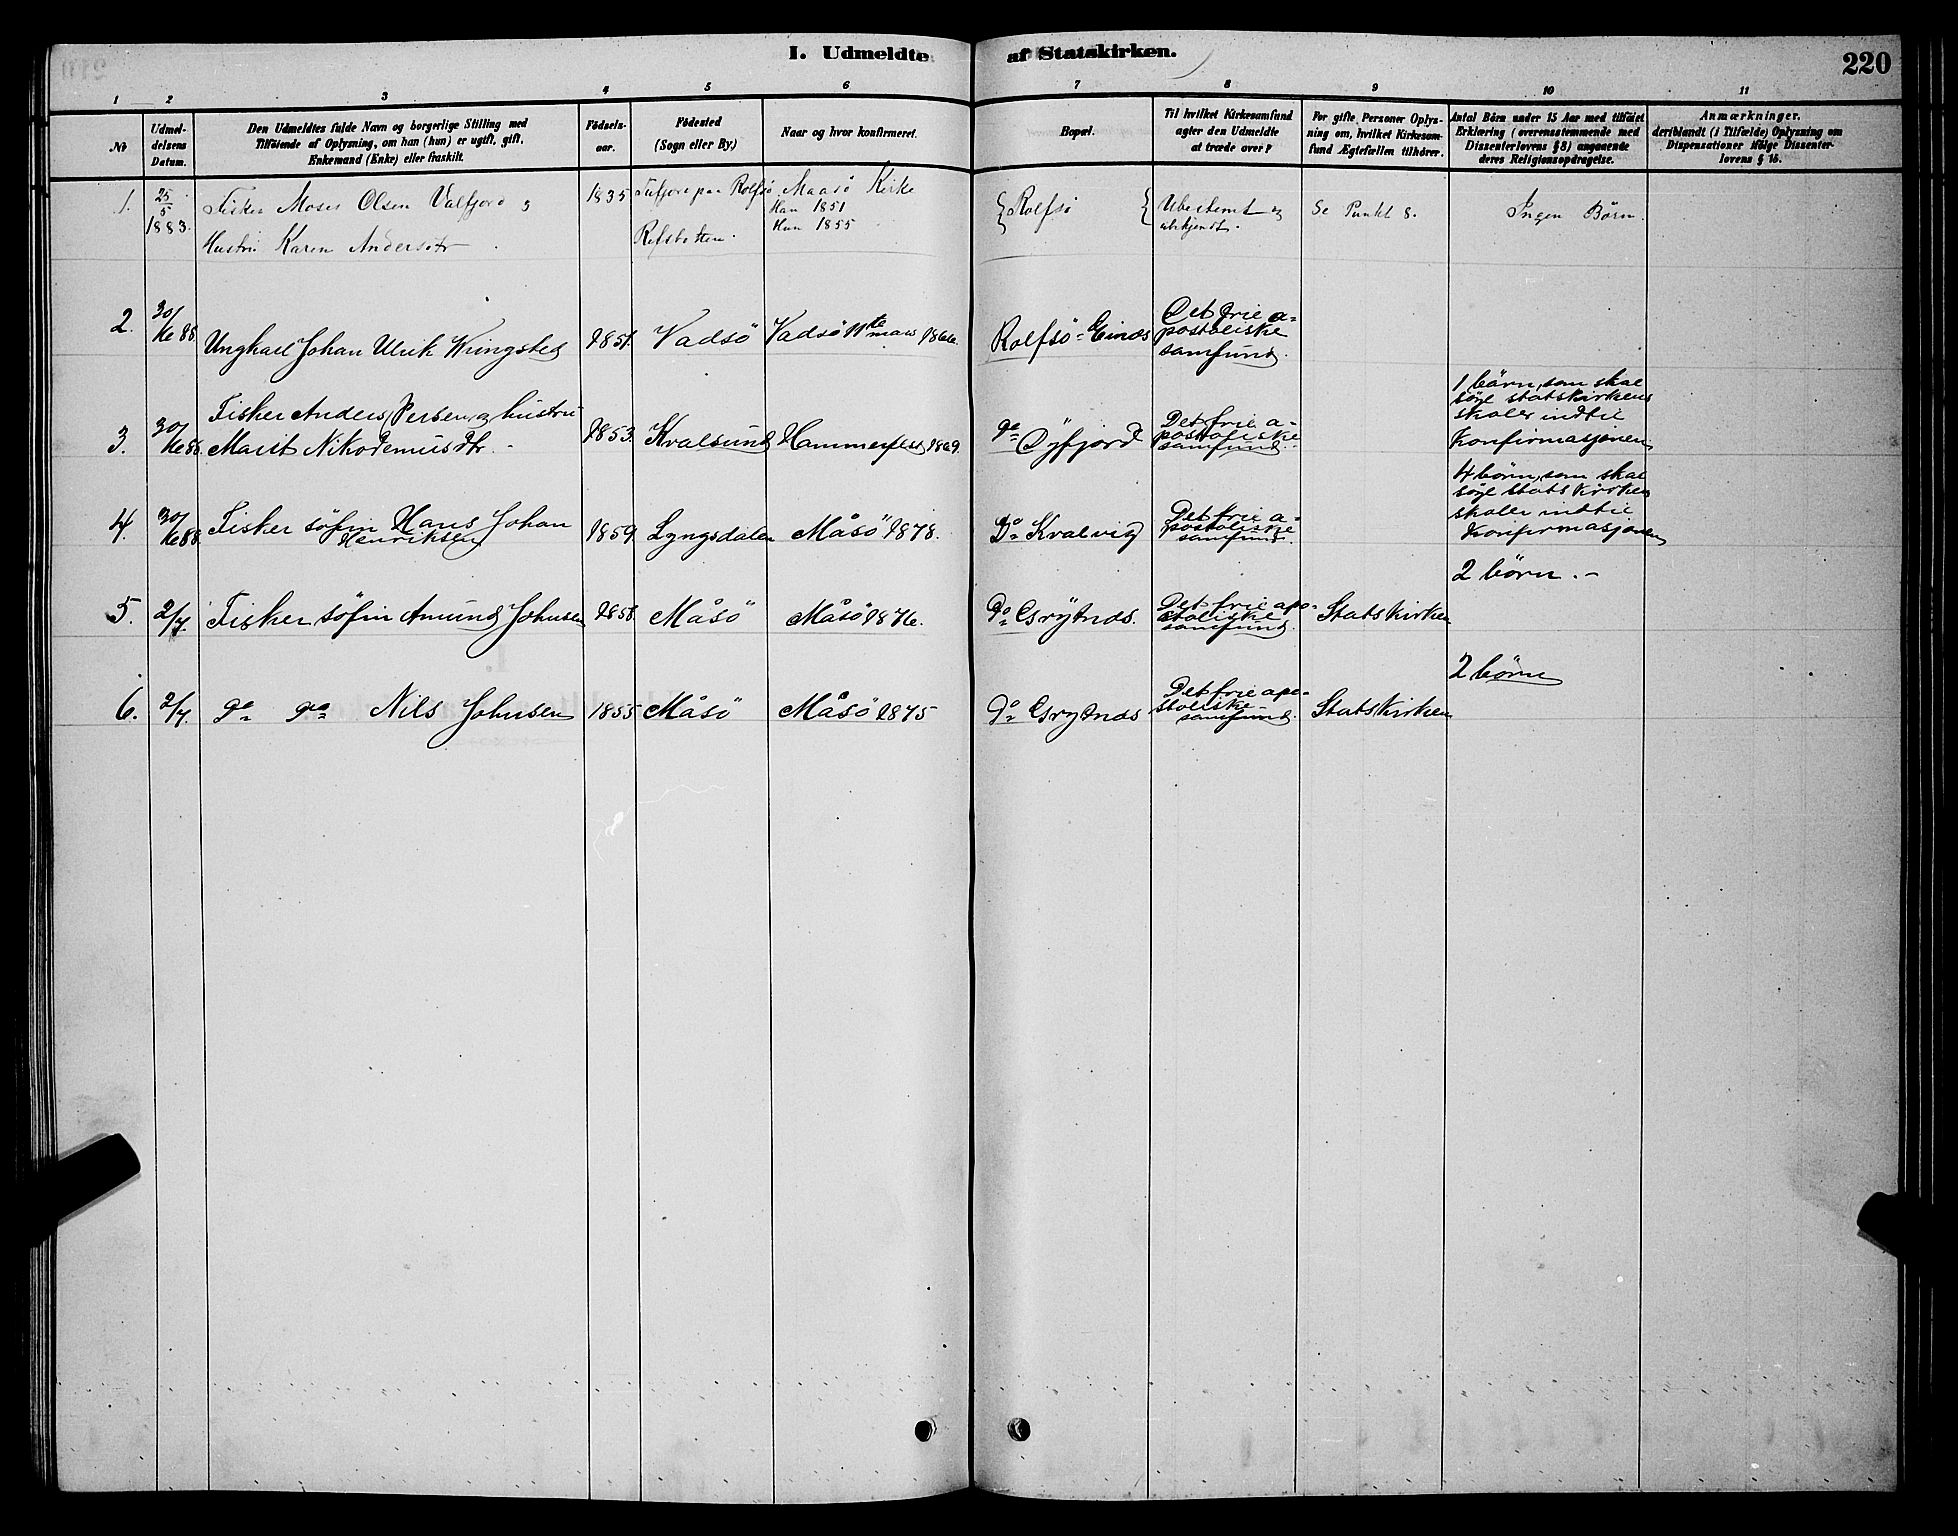 I. Udmeldte af Statskirken.
220
1 2 3 4 5 6 7 8 9 10 11
No
Udmel-
delsens
Datum.
Den Udmeldtes fulde Navn og borgerlige Stilling med
Tilföiende af Oplysning, om han (hun) er ugift, gift,
Enkemand (Enke) eller fraskilt.
Födsels-
aar.
Födested
(Sogn eller By.)
Naar og hvor konfirmeret.
Bopæl.
Til hvilket Kirkesamfund
agter den Udmeldte
at træde over?
For gifte Personer Oplys-
ning om, hvilket Kirkesam-
fund Ægtefællen tilhörer.
Antal Börn under 15 Aar med tilföiet
Erklæring (overensstemmende med
Dissenterlovens § 8) angaaende
deres Religionsopdragelse.
Anmærkninger,
deriblandt (i Tilfælde) Oplysning om
Dispensationer ifölge Dissenter-
lovens § 15.
1.
25/5
1883.
Fisker Moses Olsen Valfjord og
Hustru Karen Andersdtr
1835
paa Rolfsö
Refsbotten.
Maasö Kirke
Han 1851
Hun 1855
Rolfsö
Ubestemt og
ubekjendt.
Se Punkt 8.
Ingen Börn.
2.
30/ 88.
Ungkarl Johan Ulrik Kringsted
1851.
Vadsö
Vadsö 11te mars 1866.
Rolfsö-
Det frie a-
postoliske
samfund.
3.
30/ 88.
Fisker Anders Persen og hustru
Marit Nikodemusdtr.-
1853.
Kvalsund
Hammerfest 1869.
do Dyfjord
Det frie a-
postoliske
samfund.
1 börn, som skal
söge statskirkens
skoler indtil
Konfirmasjonen
4.
30/ 88.
Fisker söfin Hans Johan
Henriksen
1859.
Lyngsdalen
Måsö 1878.
Do Kvalvig
Det frie a-
postoliske
samfund.
4 börn, som skal
söge statskirkens
skoler indtil
Konfirmasjonen
5.
2/7.
Fisker söfin Amund Johnsen
1858.
Måsö
Måsö 1876.
do Grytnes.
Det frie apo-
stoliske
samfund.
Statskirken
2 börn.-
6.
2/7.
do do Nils Johnsen
1855
Måsö
Måsö 1875
do Grytnes
Det frie apo-
stoliske
samfund.
Statskirken
2 börn